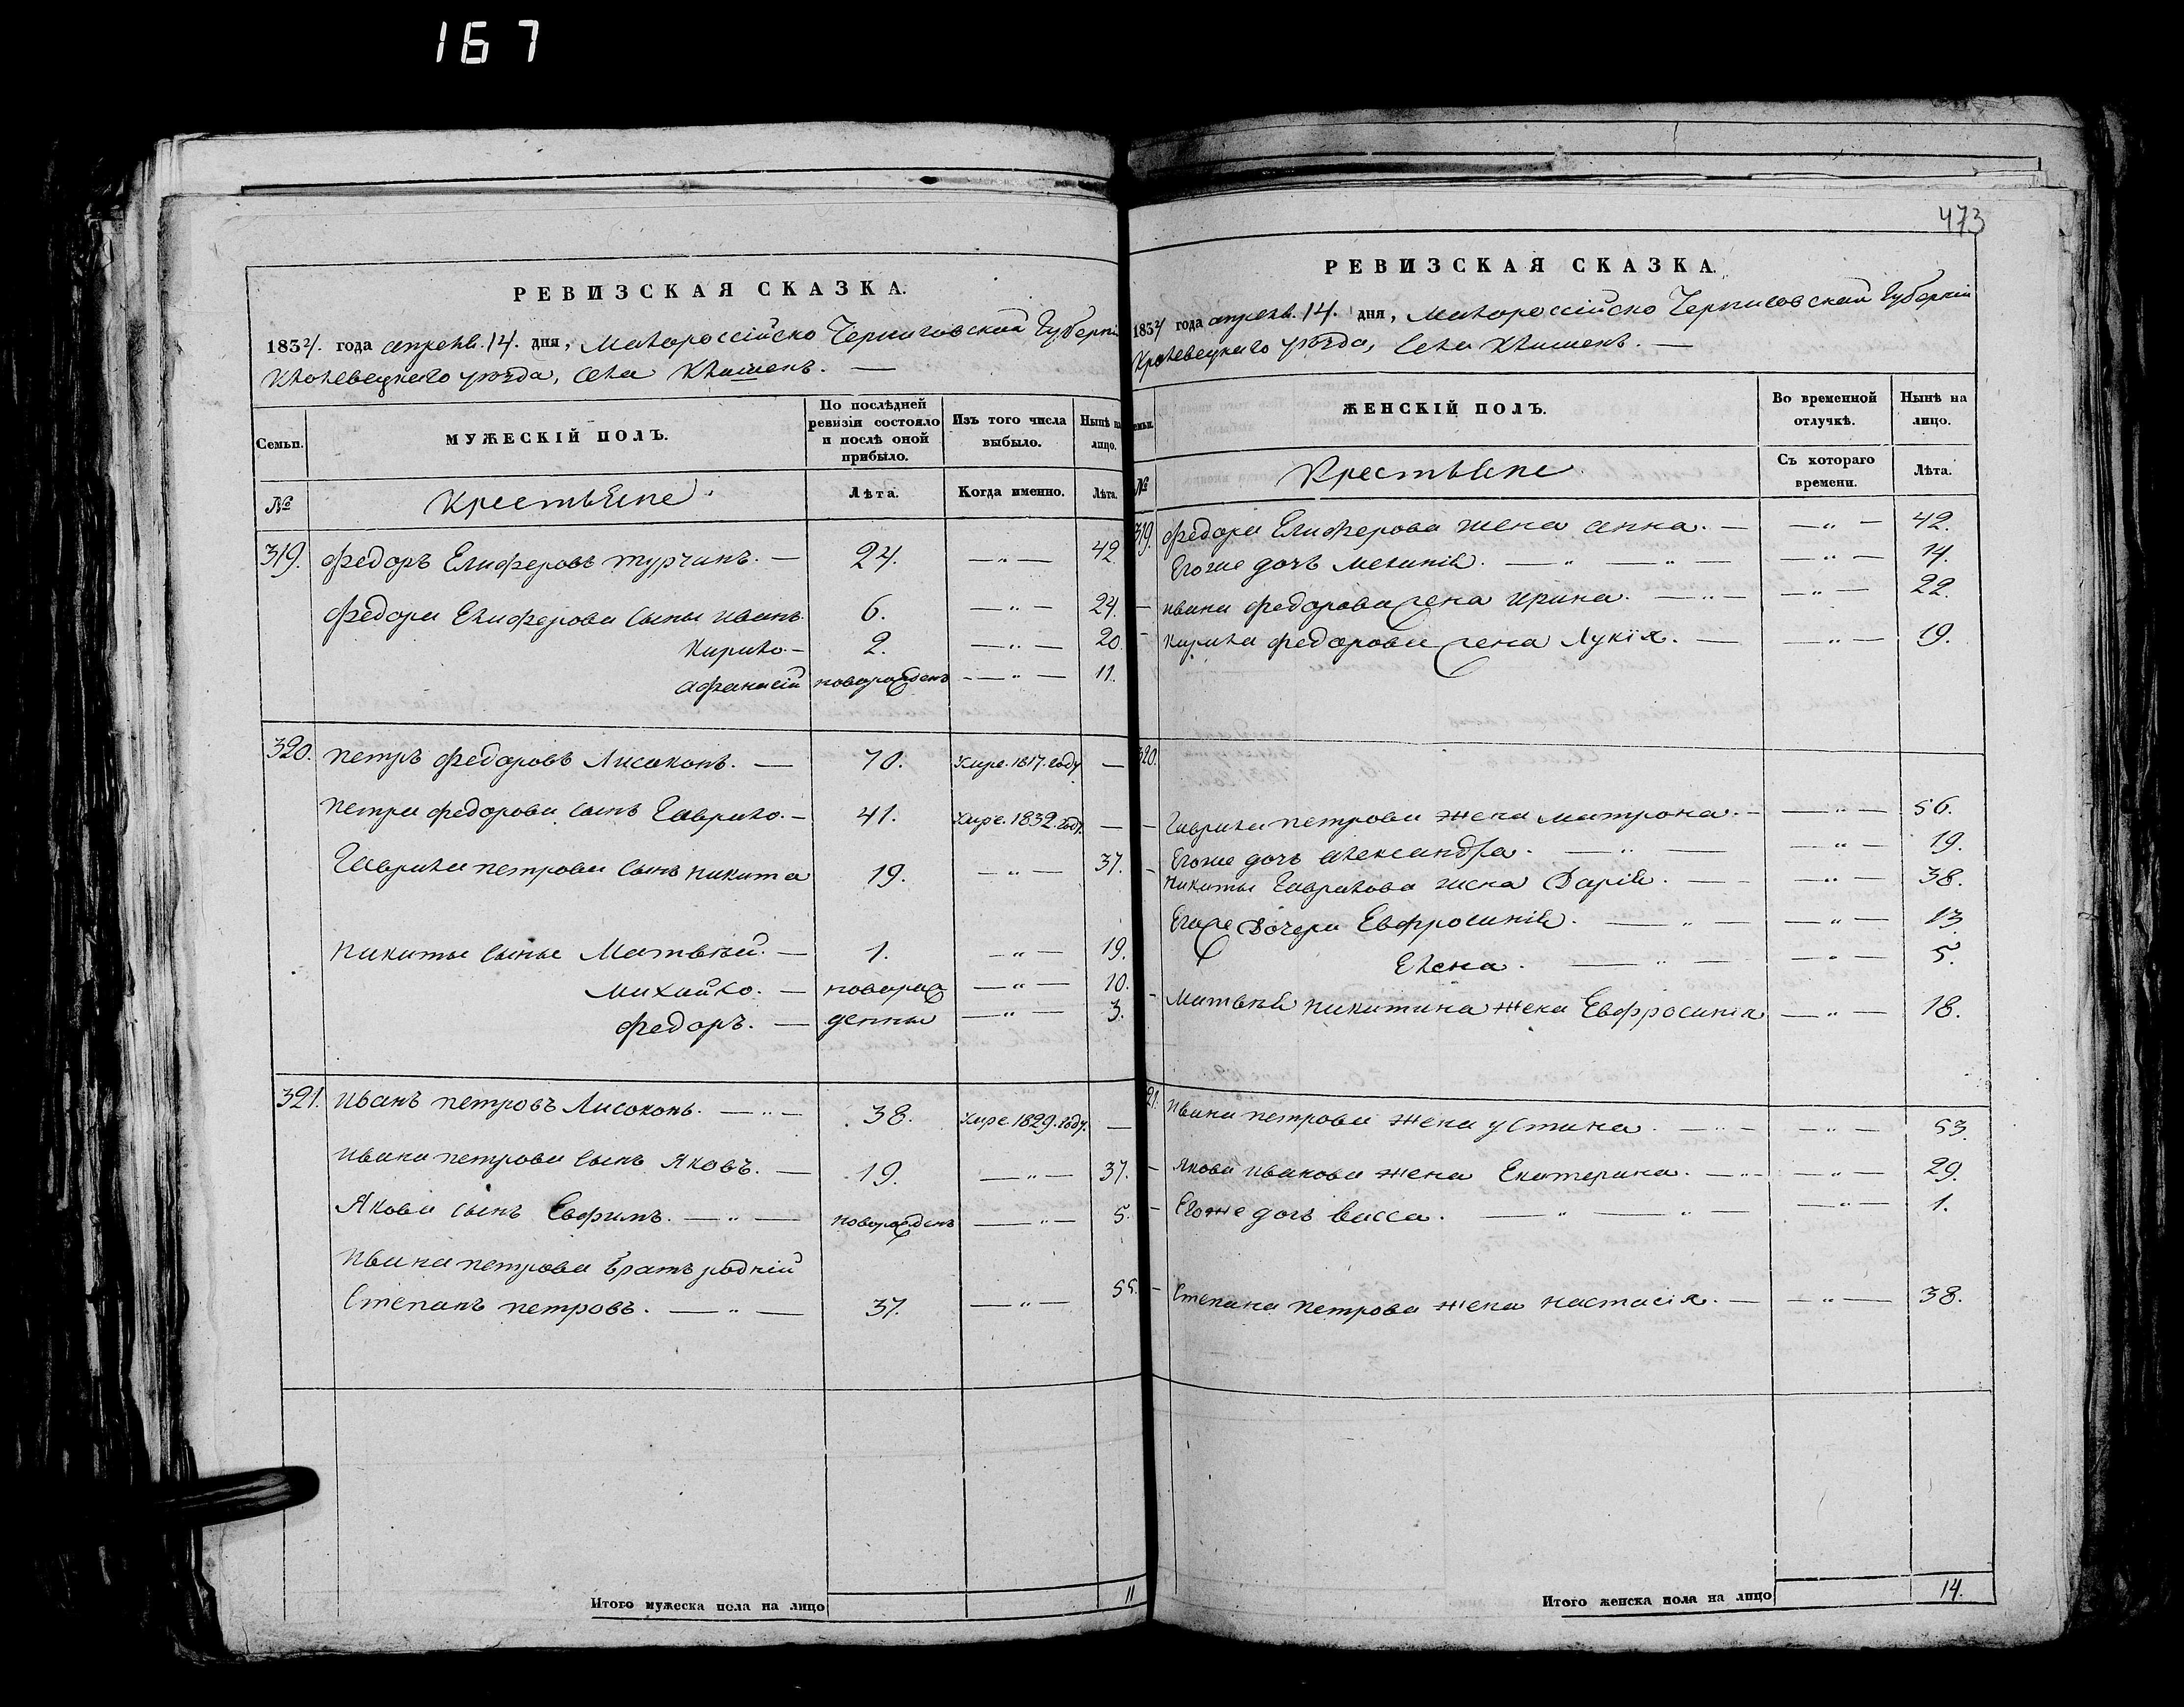 167
РЕВИЗСКАЯ СКАЗКА.
1834. года апреля. 14. дня, Малороссійско Черниговской Губерніи
Кролевецкаго уѣзда, села Клишекъ. —
Семьи.
МУЖЕСКІЙ ПОЛЪ.
По послѣдней ревизіи состояло и послѣ оной прибыло.
Изъ того числа выбыло.
Нынѣ на лицо.
№
Крестьяне.
Лѣта.
Когда именно.
Лѣта.
319. Федоръ Елиферовъ турчинъ. — 24. — „ — 42
Федора Елиферова сыны иванъ. 6. — „ — 24.
Кирило. — 2. — „ — 20.
афанасій новорожденъ — „ — 11.
320. петръ федоровъ Лисоконь. — 70. Умре. 1817. году —
петра федорова сынъ Гаврило. — 41. Умре. 1832. году. —
Гаврила петрова сынъ никита 19. — „ — 37.
никиты сынье Матвѣй. — 1. — „ — 19.
Михайло. — новорож — „ — 10.
федоръ. — денны — „ — 3.
321. иванъ петровъ Лисоконь. — „ — 38. Умре. 1829. году. —
ивана петрова сынъ Яковъ. — 19. — „ — 37.
Якова сынъ Евфимъ. — „ — новорожденъ — „ — 5.
ивана петрова братъ родній
Степанъ петровъ. — „ — 37. — „ — 55.
Итого мужеска пола на лицо 11
473
РЕВИЗСКАЯ СКАЗКА.
1834 года апреля. 14. дня, Малороссійско Черниговской Губерніи
Кролевецкаго уѣзда, села Клишекъ. —
Семьи.
ЖЕНСКІЙ ПОЛЪ.
Во временной отлучкѣ.
Нынѣ на лицо.
№
Крестьяне.
Съ котораго времени.
Лѣта.
319. федора Елиферова жена анна. — — „ — 42.
Егоже дочь Меланія. — „ — „ — — „ — 14.
— ивана федорова жена ирина. — „ — — „ — 22.
— кирила федорова жена Лукія. — — „ — 19.
320.
— Гаврила петрова жена матрона. — — „ — 56.
Егоже дочь александра. — „ — — „ — 19.
— никиты Гаврилова жена Дарія. — — „ — 38.
Егоже дочери Евфросинія. — „ — — „ — 13.
Елена. — „ — — „ — 5.
— Матвѣя никитина жена Евфросинія — „ — 18.
321. ивана петрова жена устина. — „ — — „ — 53.
— якова иванова жена Екатерина. — „ — — „ — 29.
— Егоже дочь васса. — „ — „ — — „ — 1.
— Степана петрова жена настасія. — — „ — 38.
Итого женска пола на лицо 14.